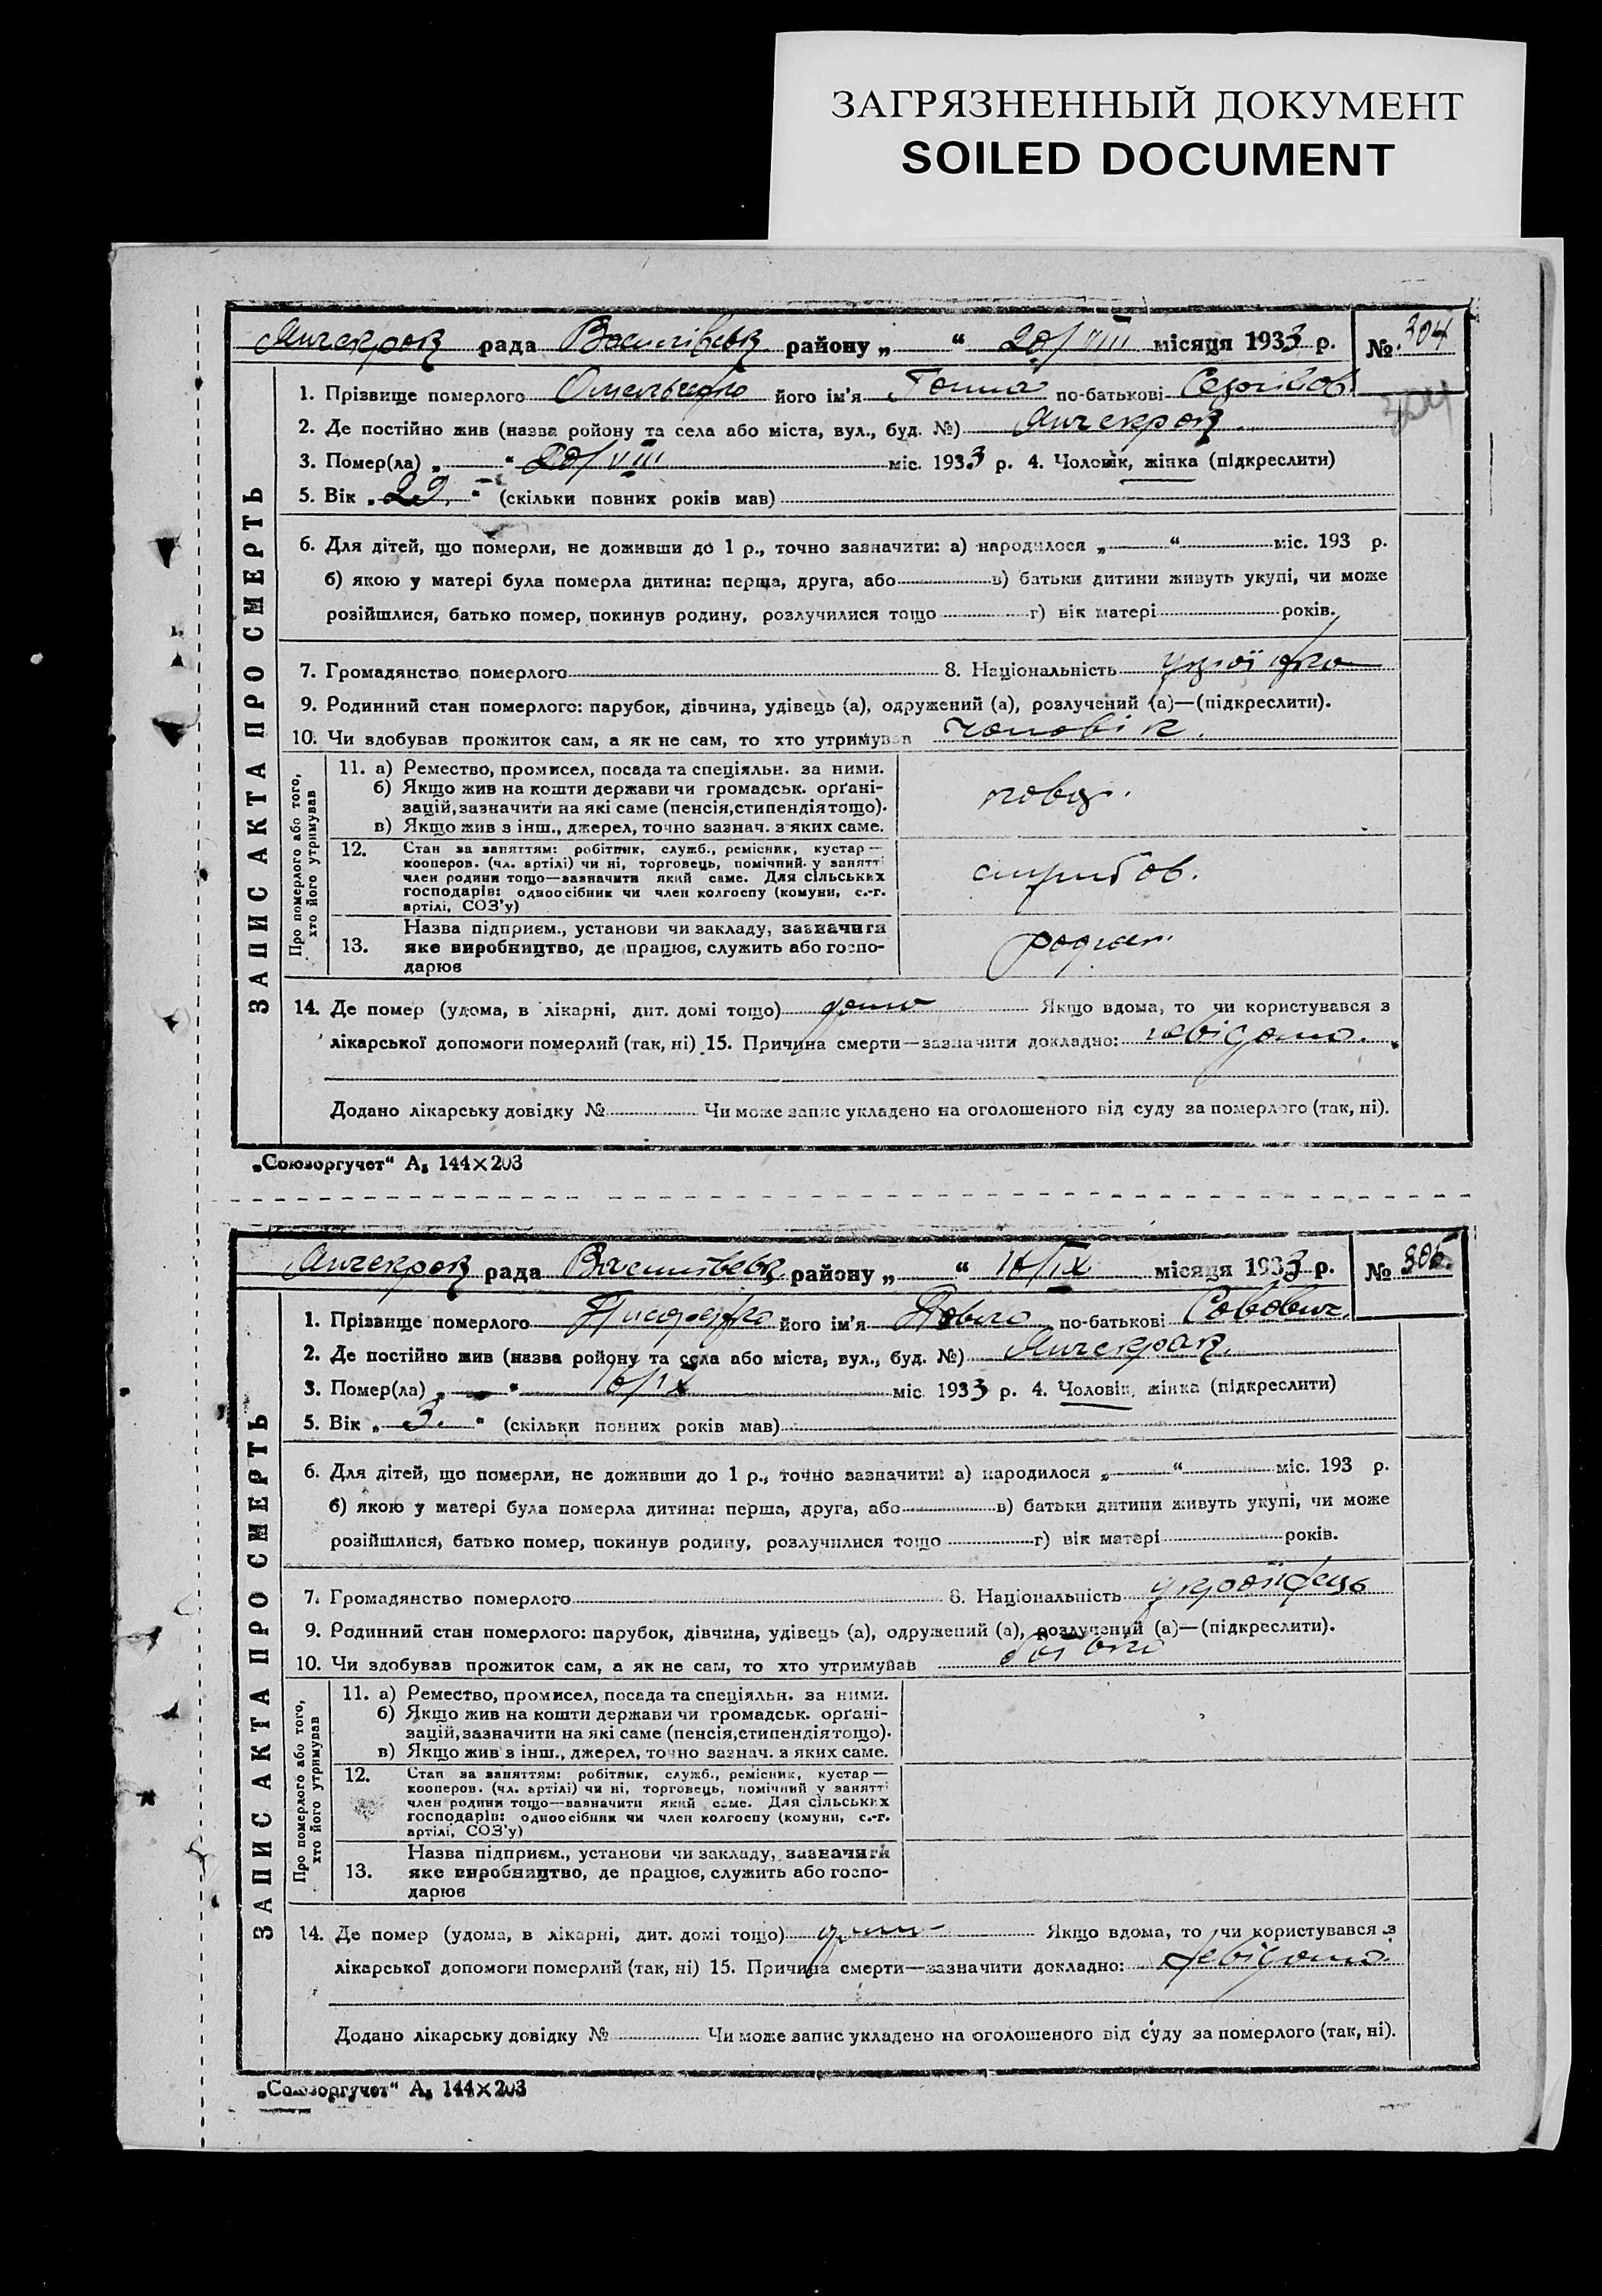 ЗАГРЯЗНЕННЫЙ ДОКУМЕНТ
SOILED DOCUMENT
рада Василівськ району „ “ 20/VIII місяця 1933 р. № 304
1. Прізвище померлого його ім'я Ганна по-батькові
2. Де постійно жив (назва ройону та села або міста, вул., буд. №)
3. Помер(ла) „ “ 20/VIII міс. 1933 р. 4. Чоловік, жінка (підкреслити)
5. Вік „ 29 “ (скільки повних років мав)
6. Для дітей, що померли, не доживши до 1 р., точно зазначити: а) народилося „ “ міс. 193 р.
б) якою у матері була померла дитина: перша, друга, або в) батьки дитини живуть укупі, чи може
розійшлися, батько помер, покинув родину, розлучилися тощо г) вік матері років.
7. Громадянство померлого 8. Національність українка
9. Родинний стан померлого: парубок, дівчина, удівець (а), одружений (а), розлучений (а)—(підкреслити).
10. Чи здобував прожиток сам, а як не сам, то хто утримував чоловік.
ЗАПИС АКТА ПРО СМЕРТЬ
Про померлого або того, хто його утримував
11. а) Ремество, промисел, посада та спеціяльн. за ними.
б) Якщо жив на кошти держави чи громадськ. органі-
зацій, зазначити на які саме (пенсія, стипендія тощо).
в) Якщо жив з інш., джерел, точно зазнач. з яких саме.
12. Стан за заняттям: робітник, служб., ремісник, кустар—
кооперов. (чл. артілі) чи ні, торговець, помічний у занятті
член родини тощо—зазначити який саме. Для сільських
господарів: одноосібник чи член колгоспу (комуни, с.-г.
артілі, СОЗ'у)
13. Назва підприєм., установи чи закладу, зазначити
яке виробництво, де працює, служить або госпо-
дарює
14. Де помер (удома, в лікарні, дит. домі тощо) дома Якщо вдома, то чи користувався з
лікарської допомоги померлий (так, ні) 15. Причина смерти—зазначити докладно: невідома.
Додано лікарську довідку № Чи може запис укладено на оголошеного від суду за померлого (так, ні).
„Союзоргучет“ А₅ 144×203
рада Василівськ району „ “ 16/IX місяця 1933 р. № 305.
1. Прізвище померлого його ім'я Павло по-батькові Савович
2. Де постійно жив (назва ройону та села або міста, вул., буд. №)
3. Помер(ла) „ “ 16/IX міс 1933 р. 4. Чоловік, жінка (підкреслити)
5. Вік „ 3. “ (скільки повних років мав)
6. Для дітей, що померли, не доживши до 1 р., точно зазначити: а) народилося „ “ міс. 193 р.
б) якою у матері була померла дитина: перша, друга, або в) батьки дитини живуть укупі, чи може
розійшлися, батько помер, покинув родину, розлучилися тощо г) вік матері років.
7. Громадянство померлого 8. Національність українець
9. Родинний стан померлого: парубок, дівчина, удівець (а), одружений (а), розлучений (а)—(підкреслити).
10. Чи здобував прожиток сам, а як не сам, то хто утримував
ЗАПИС АКТА ПРО СМЕРТЬ
Про померлого або того, хто його утримував
11. а) Ремество, промисел, посада та спеціяльн. за ними.
б) Якщо жив на кошти держави чи громадськ. органі-
зацій, зазначити на які саме (пенсія, стипендія тощо).
в) Якщо жив з інш., джерел, точно зазнач. з яких саме.
12. Стан за заняттям: робітник, служб., ремісник, кустар—
кооперов. (чл. артілі) чи ні, торговець, помічний у занятті
член родини тощо—зазначити який саме. Для сільських
господарів: одноосібник чи член колгоспу (комуни, с.-г.
артілі, СОЗ'у)
13. Назва підприєм., установи чи закладу, зазначити
яке виробництво, де працює, служить або госпо-
дарює
14. Де помер (удома, в лікарні, дит. домі тощо) дома Якщо вдома, то чи користувався з
лікарської допомоги померлий (так, ні) 15. Причина смерти—зазначити докладно: невідома
Додано лікарську довідку № Чи може запис укладено на оголошеного від суду за померлого (так, ні).
„Союзоргучет“ А₅ 144×203